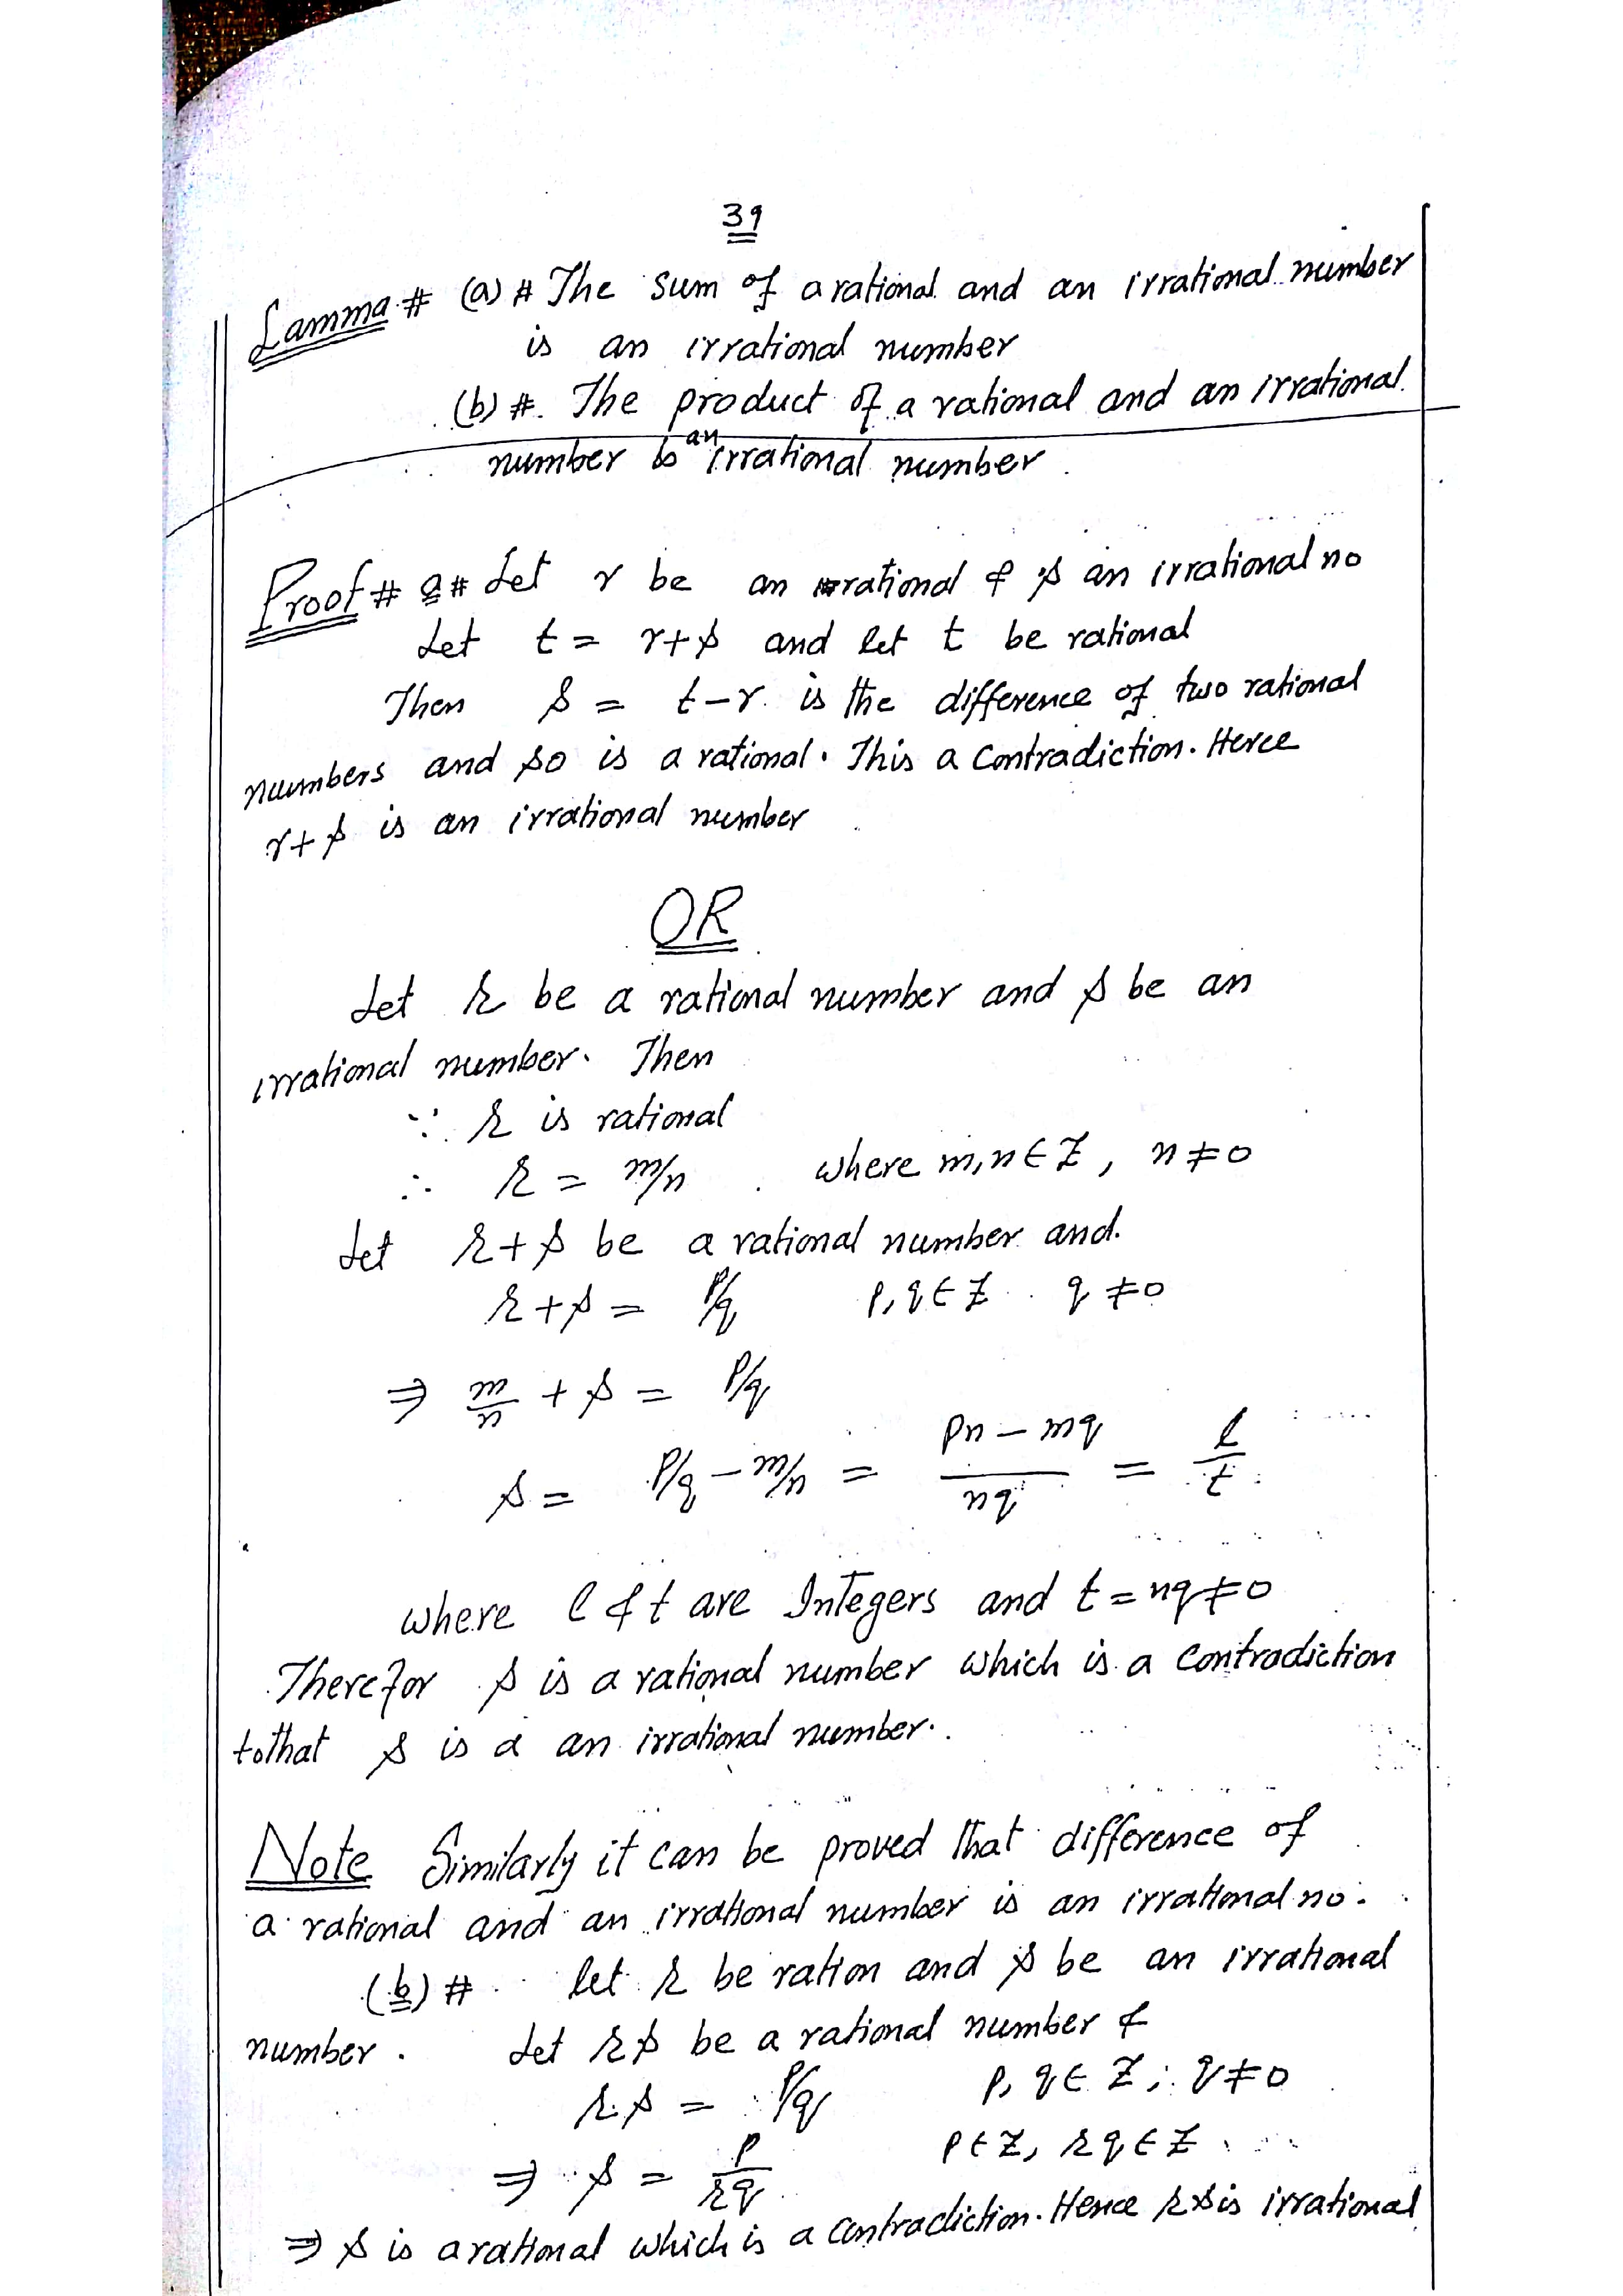 39
Lamma # (a) # The sum of a rational and an irrational number
is an irrational number
(b) #. The product of a rational and an irrational.
number is an irrational number.
Proof # a # Let r be an rational & s an irrational no
Let t = r+s and let t be rational
Then s = t-r is the difference of two rational
numbers and so is a rational. This a Contradiction. Herce
r+s is an irrational number
OR
Let r be a rational number and s be an
irrational number. Then
∵ r is rational
∴ r = m/n where m,n ∈ Z, n ≠ 0
Let r+s be a rational number and.
r+s = p/q p,q ∈ Z q ≠ 0
⇒ m/n + s = p/q
s = p/q - m/n = (pn - mq)/nq = l/t
where l & t are Integers and t = nq ≠ 0
Therefor s is a rational number which is a contradiction
to that s is a an irrational number.
Note Similarly it can be proved that difference of
a rational and an irrational number is an irrational no.
(b) # let r be ration and s be an irrational
number. Let rs be a rational number &
r.s = p/q p, q ∈ Z; q ≠ 0
⇒ s = p/rq p ∈ Z, rq ∈ Z
⇒ s is a rational which is a contradiction. Hence rs is irrational